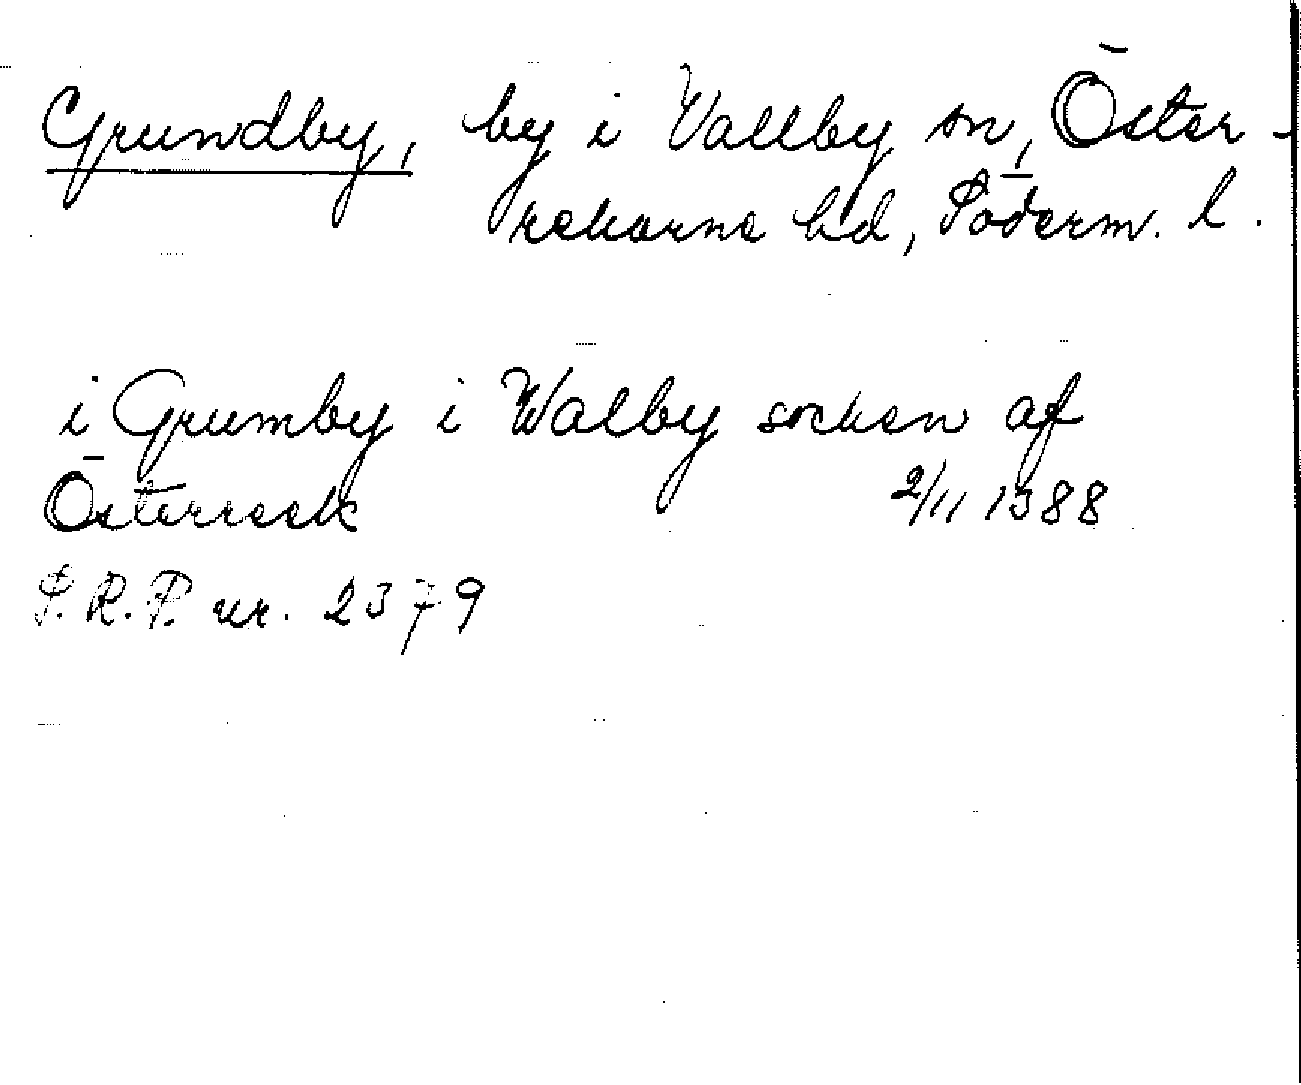 Grundby, by i Vallby sn, Öster-
rekarne hd, Söderm. l.
i Grumby i Walby socken af
Österresk 2/11 1388
S.R.P. nr. 2379